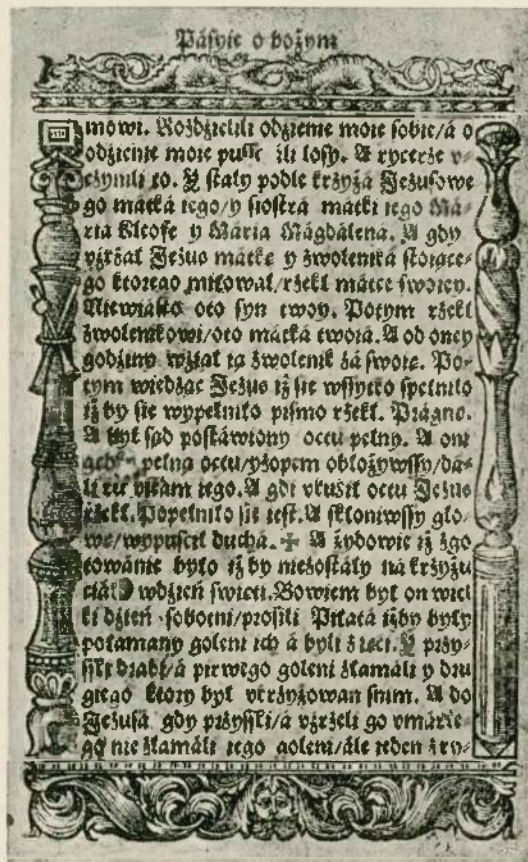 Pásyie o bożym
mowi. Rozdzielili odzienie moie sobie/á o
odzienie moie puſſc ili loſy. A rycerże v⸗
czynili to. Y ſtały podle krżyżá Jezuſowe
go matká iego/y ſioſtrá matki iego Má⸗
ria Kleofe y Máriá Mágdálená. A gdy
vjrżał Jezus mátkę y zwoleniká ſtoiące⸗
go ktorego miłował/rżekł mátce ſwoiey.
Niewiáſto oto ſyn twoy. Potym rżekł
zwolenikowi/oto mátká twoiá. A od oney
godziny wżiął ią zwolenik zá ſwoię. Po⸗
tym wiedząc Jezus iż ſie wſſytko ſpełniło
iż by ſie wypełniło piſmo rżekł. Prágnę.
A był ſąd poſtáwiony octu pełny. A oni
gębę pełną octu/yzopem obłożywſſy/da⸗
li ku vſtam iego. A gdi vkuſił octu Jezus
rżekł. Popełniło ſie ieſt. A ſkłoniwſſy gło⸗
wę/wypuścił duchá. ✢ A żydowie iż zgo
towánie było iż by nie zoſtáły ná krżyżu
ciáłá w dzień święti. Bowiem był on wiel
ki dzień ſobotni/proſili Piłatá iżby były
połamány goleni ich á byli zięci. Y przy⸗
ſſli drabi/á pirwego goleni złamáli y dru
giego ktory był vkrżyżowan ſnim. A do
Jezuſá gdy przyſſli/á vzrżeli go vmárłe⸗
go nie złamáli iego goleni/ále ieden z ry⸗